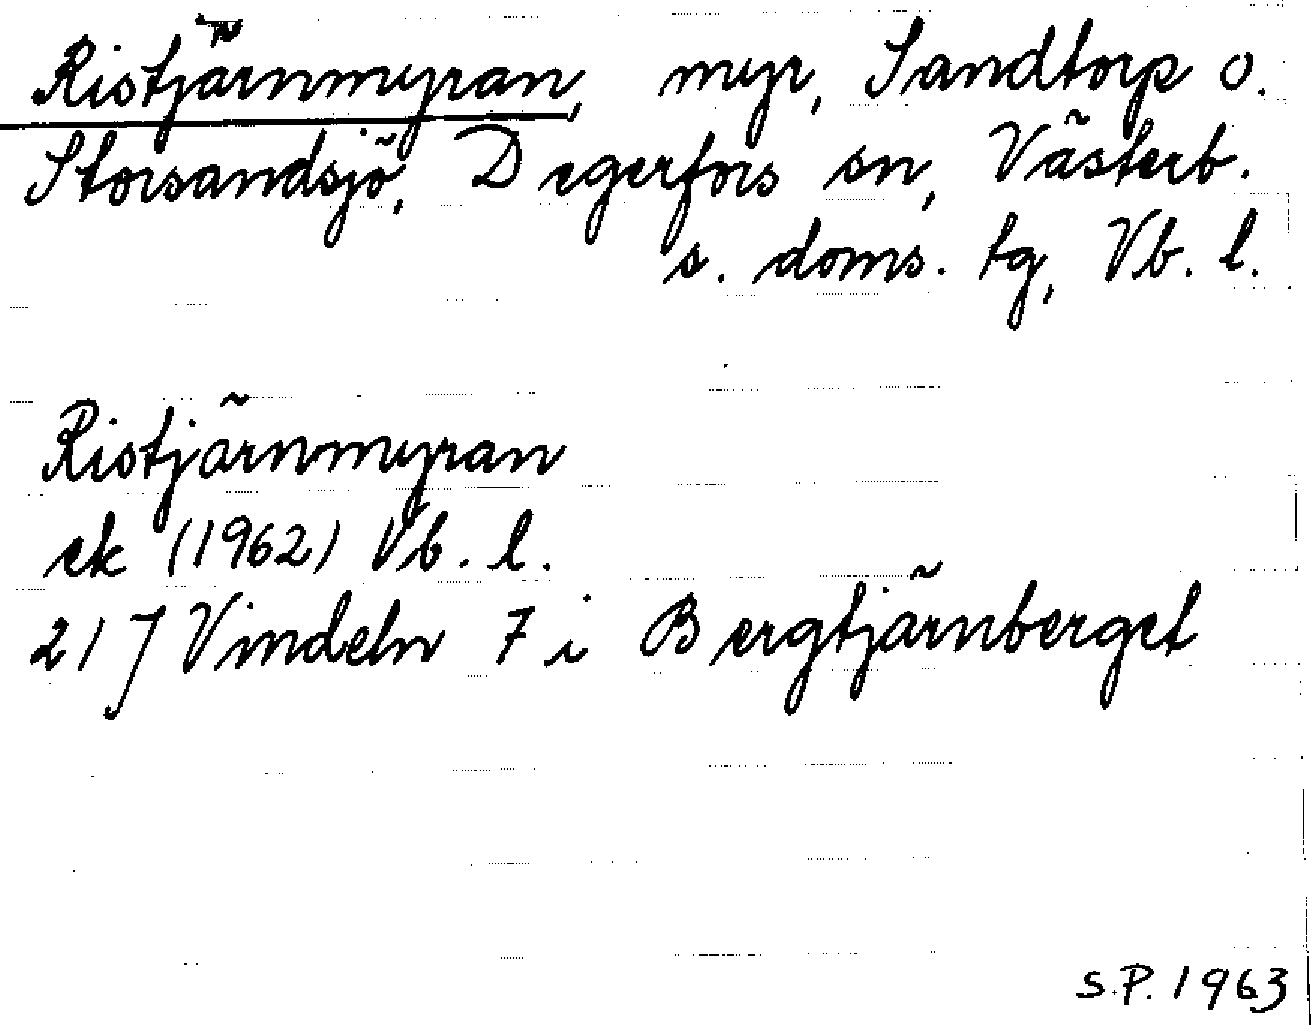 Ristjärnmyran, myr, Sandtorp o.
Storsandsjö, Degerfors sn, Västerb.
s. doms. tg, Vb. l.
Ristjärnmyran
ek (1962) Vb. l.
21J Vindeln 7 i Bergtjärnberget
S.P. 1963